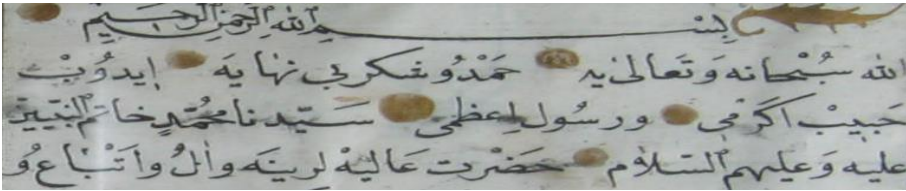 بسم الله الرحمن الرحيم
الله سبحانه وتعالى يه حمد و شكر بى نهايه ايدوب
حبيب اكرمى و رسول اعظمى سيدنا محمد خاتم النبيين
عليه وعليهم السلام حضرت عاليه لرينه وال واتباع و